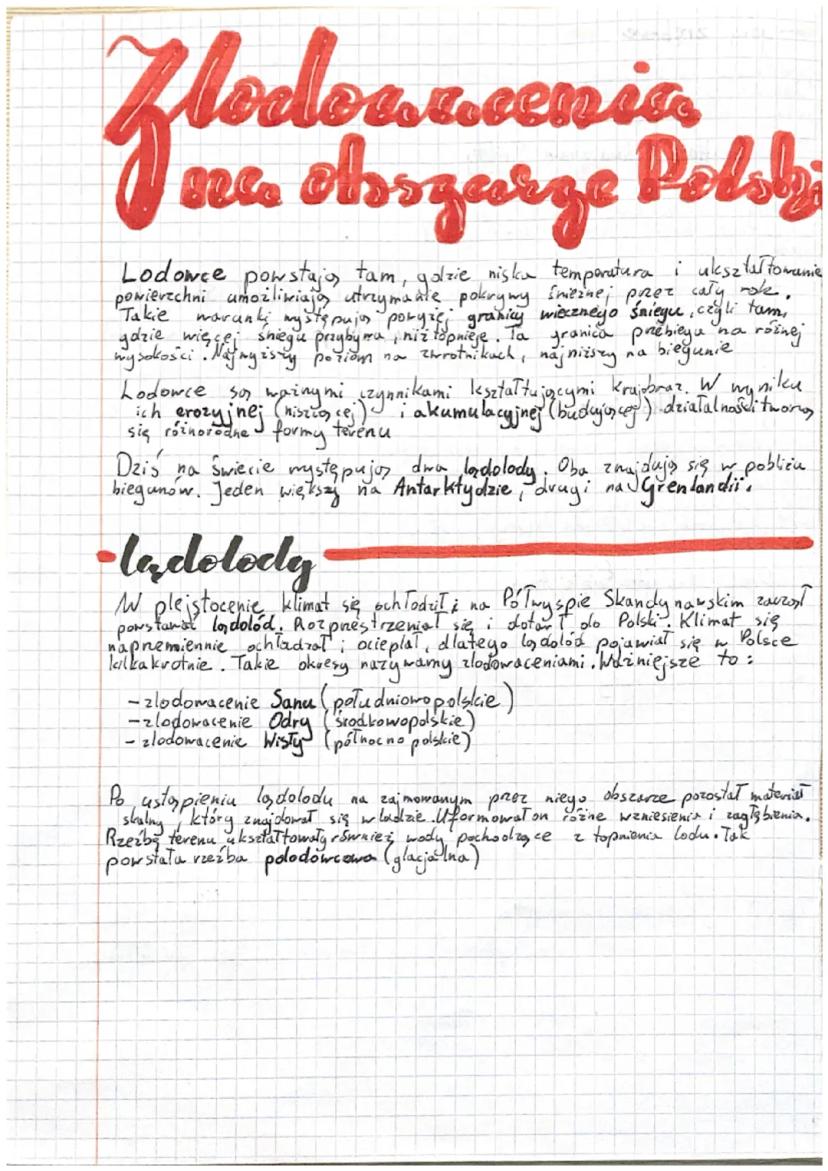 Zlodowacenia
na obszarze Polski
Lodowce powstają tam, gdzie niska temperatura i ukształtowanie
powierzchni umożliwiają utrzymanie pokrywy śnieżnej przez cały rok.
Takie warunki występują powyżej granicy wiecznego śniegu, czyli tam,
gdzie więcej śniegu przybywa, niż topnieje. Ta granica przebiega na różnej
wysokości. Najwyższy poziom na zwrotnikach, najniższy na biegunie
Lodowce są ważnymi czynnikami kształtującymi krajobraz. W wyniku
ich erozyjnej (niszczącej) i akumulacyjnej (budującej) działalności tworzą
się różnorodne formy terenu
Dziś na świecie występują dwa lądolody. Oba znajdują się w pobliżu
biegunów. Jeden większy na Antarktydzie, drugi na Grenlandii.
lądolody
W plejstocenie klimat się ochłodził i na Półwyspie Skandynawskim zaczął
powstawać lądolód. Rozprzestrzeniał się i dotarł do Polski. Klimat się
naprzemiennie ochładzał i ocieplał, dlatego lądolód pojawiał się w Polsce
kilkakrotnie. Takie okresy nazywamy zlodowaceniami. Ważniejsze to:
- zlodowacenie Sanu (południowopolskie)
- zlodowacenie Odry (środkowopolskie)
- zlodowacenie Wisły (północno polskie)
Po ustąpieniu lądolodu na zajmowanym przez niego obszarze pozostał materiał
skalny, który znajdował się w lodzie. Uformował on różne wzniesienia i zagłębienia.
Rzeźbę terenu ukształtowały również wody pochodzące z topnienia lodu. Tak
powstała rzeźba polodowcowa (glacjalna)